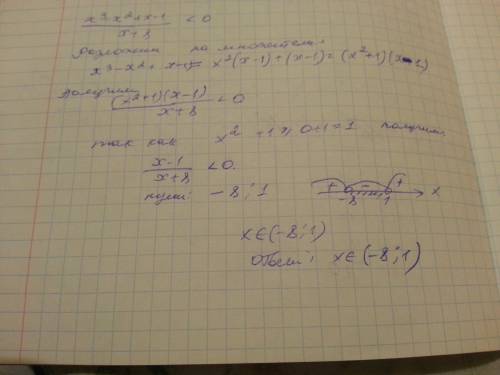 x³-x²+x-1 / x+8 < 0
Разложим на множители:
x³-x²+x-1 = x²(x-1)+(x-1) = (x²+1)(x-1)
Получим
(x²+1)(x-1) / x+8 < 0
так как x²+1 ≥ 0+1=1 получим:
x-1 / x+8 < 0.
нули: -8; 1
+ - +
-8 1 x
x∈(-8;1)
Ответ: x∈(-8;1)